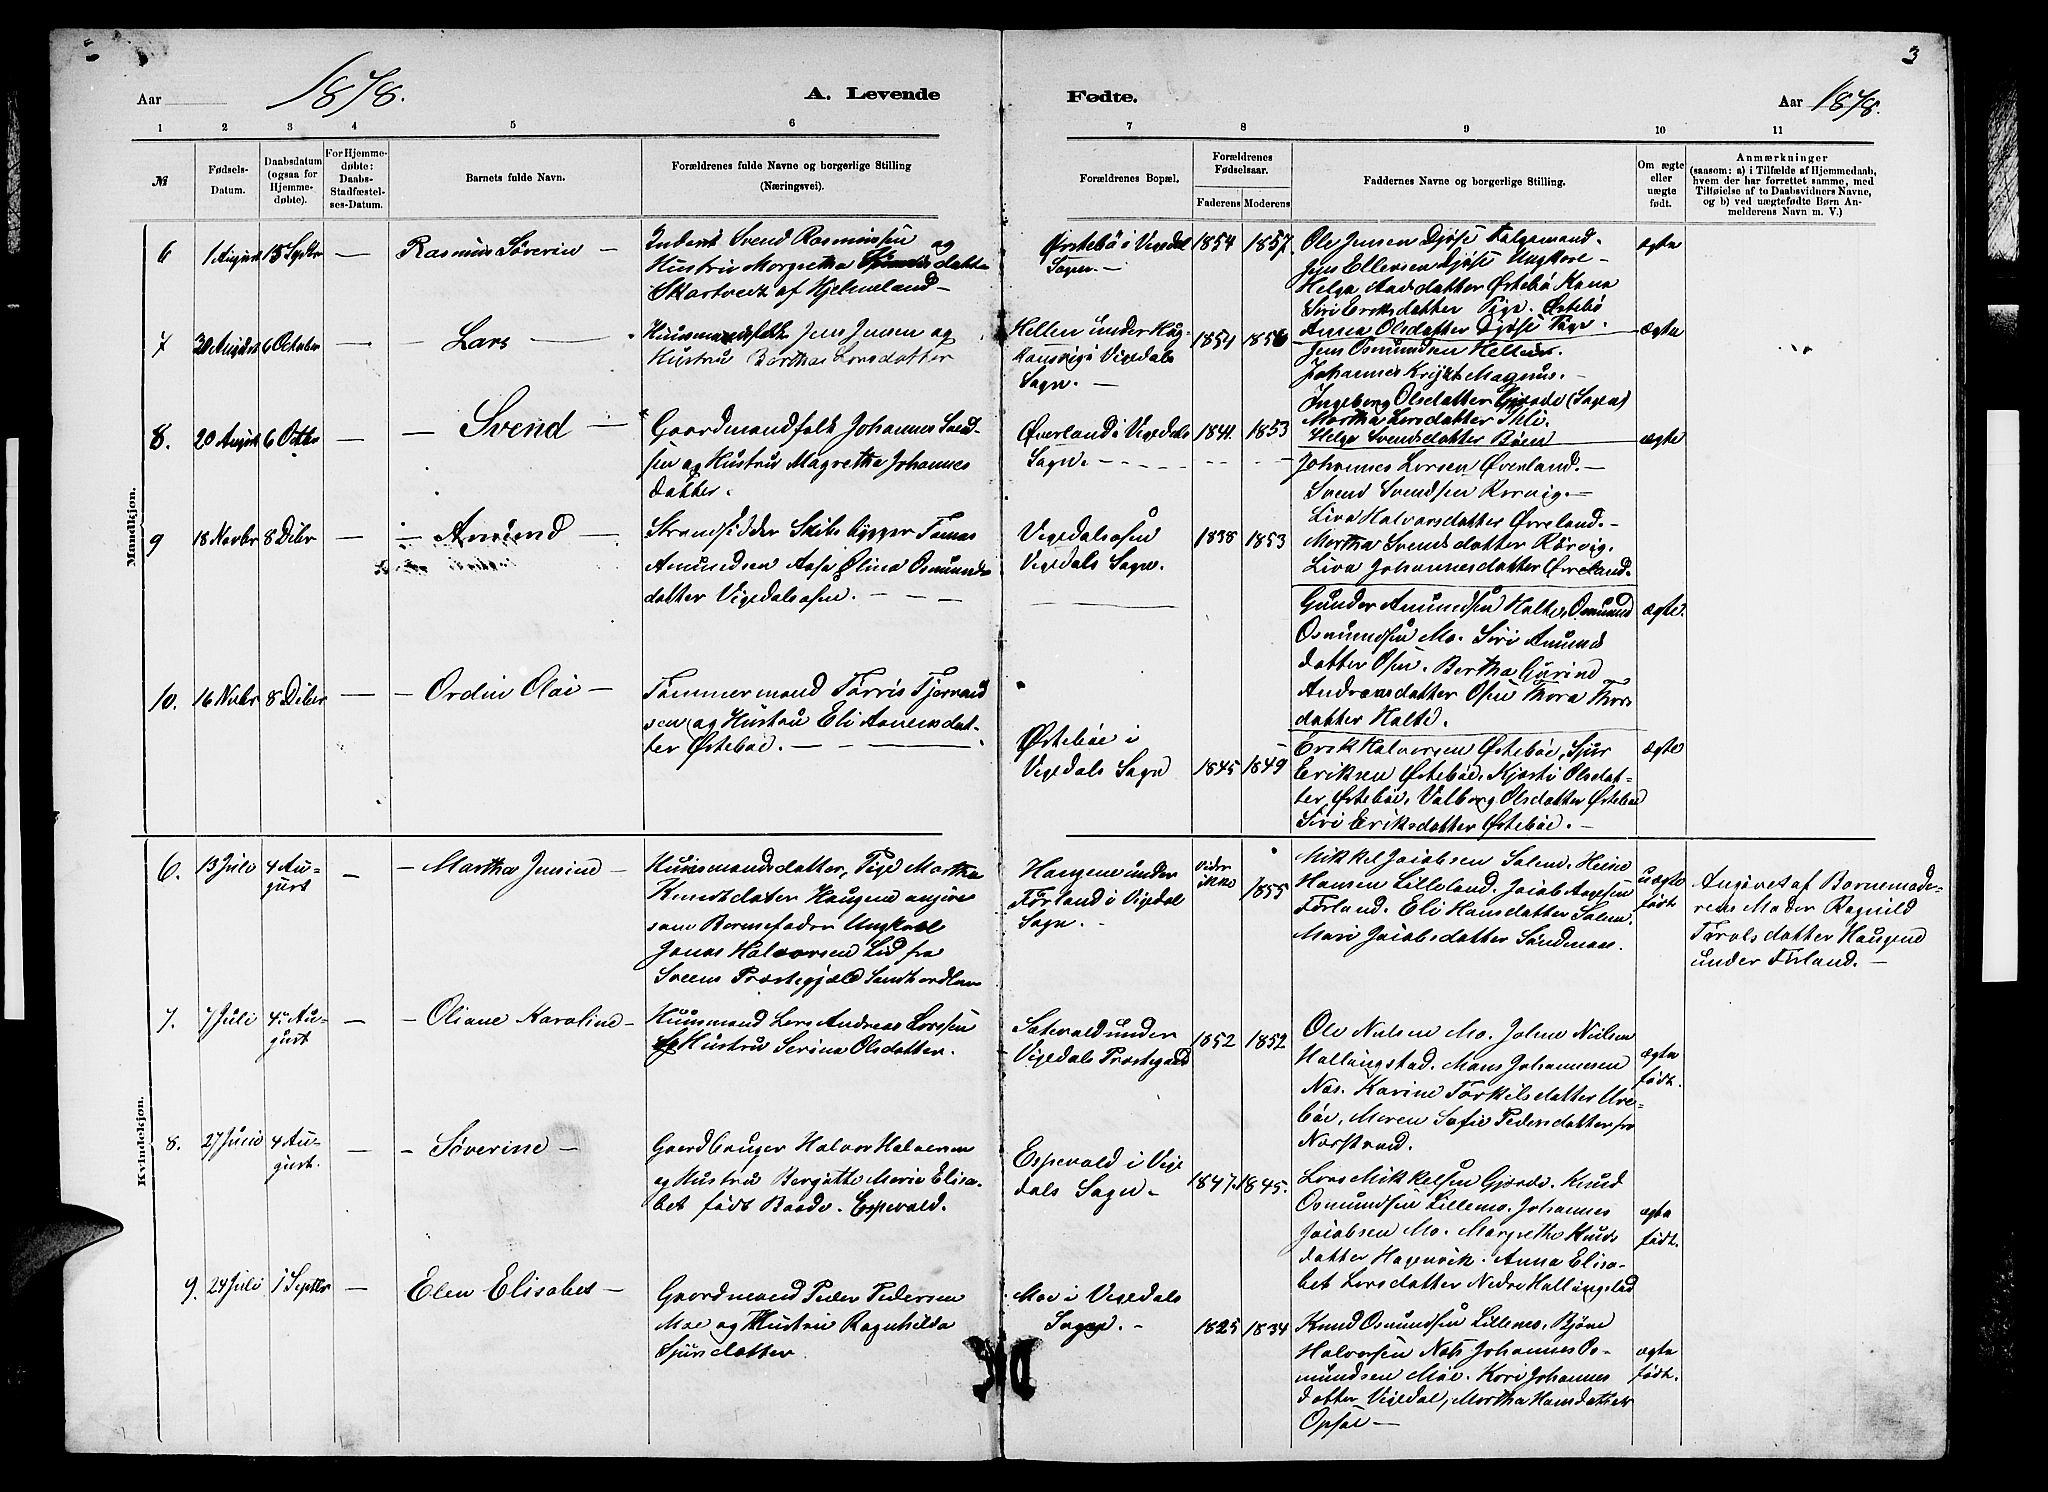 3
Aar 1878.
A. Levende
Fødte.
Aar 1878.
1 2 3 4 5 6
7 8 9 10 11
№
Fødsels-
Datum.
Daabsdatum
(ogsaa for
Hjemme-
døbte).
For Hjemme-
døbte:
Daabs-
Stadfæstel-
ses-Datum.
Barnets fulde Navn.
Forældrenes fulde Navne og borgerlige Stilling
(Næringsvei).
Forældrenes Bopæl.
Forældrenes
Fødselsaar.
Faderens Moderens
Faddernes Navne og borgerlige Stilling.
Om ægte
eller
uægte
født.
Anmærkninger
(saasom: a) i Tilfælde af Hjemmedaab,
hvem der har forrettet samme, med
Tilføielse af to Daabsvidners Navne,
og b) ved uægtefødte Børn An-
melderens Navn m. V.)
Mandkjøn.
6 1 August 15 Septbr — Rasmus Søverin —
Inderst Svend Rasmussen og
Hustru Margretha
Skartvedt af Hjelmeland —
Østebö i Vigedal
Sogn. —
1854 1857.
Ole Jensen Djöse
Jens Ellersen Djöse Ungkarl —
Helga Aadsdatter Østebö Kona
Siri Eriksdatter Pige. Østebö
Anna Olsdatter Djöse Pige.
ægte
7 6 October — Lars —
Huusmandsfolk Jens Jensen og
Hustru Bertha Larsdatter
Hellen under
i Vigedals
Sogn. —
1854 1856
Jens Osmundsen Hellen.
Johannes Magnus. —
Ingeborg Olsdatter Gjerde (Sogn)
Martha Larsdatter
Helga Svendsdatter Böen
ægte
8. 20 August 6 Octbr — Svend —
Gaardmandfolk Johannes Svend-
sen og Hustru Magretha Johannes
datter.
Øverland i Vigedals
Sogn. —
1841. 1853
Johannes Larsen Øverland. —
Svend Svendsen Rørvig. —
Liva Halvarsdatter Øvreland. —
Martha Svendsdatter Rörvig.
Liva Johannesdatter Øvreland.
ægte
9 18 Novbr 8 Dcbr — Amund —
Strandsidder Skibsbygger Tomas
Amundsen Aasa Ølina Osmunds
datter Vigedalsosen. —
Vigedalsosen
Vigedals Sogn.
1838 1853
Gunder Amundsen Halte, Osmund
Osmundsen Mo. Siri Amund
datter Osen. Bertha Gurine
Andreasdatter Osen Thora Thors
datter Halte.
ægte.
10. 16 Novbr 8 Dcbr — Ordin Olai —
Tømmermand Tørris Tjerand
sen og Hustru Eli Aanensdat-
ter Østeböe. —
Østeböe i
Vigedals Sogn
1845 1849
Erik Halvorsen Østeböe, Sjur
Eriksen Østeböe, Kjersti Olsdat-
ter Østeböe, Valborg Olsdatter Østeböe
Siri Eriksdatter Østeböe. —
ægte
Kvindekjøn.
6. 13 Juli 4 Au-
gust — Martha Jensine —
Huusmandsdatter, Pige Martha
Knudsdatter Haugene angives
som Barnefader Ungkarl
Jonas Halvorsen Lid fra
Sveens Præstegjæld Søndhordlen
Haugene under
Førland i Vigedal
Sogn. —
Vides
ikke 1855
Mikkel Jacobsen Salem. Heine
Hansen Lilleland. Jacob Aagesen
Førland. Eli Hansdatter Salem.
Mari Jacobsdatter Sandmoen.
uægte
født.
Angivet af Barnemode-
rens Moder Ragnild
Toralsdatter Haugene
under Førland. —
7. 7 Juli 4 Au-
gust — Oliane Karoline —
Huusmand Lars Andreas Larssen
og Hustru Serina Olsdatter.
Sætevald under
Vigedals Præstegaard
1852 1852
Ole Nielsen Mo. Jolene Nielsen
Hallangstad. Mons Johannesen
Næs. Karine Torkilsdatter Øvre-
böe, Maren Sofie Pedersdatter fra
Norstrand.
ægte
født.
8. 27 Juni 4 Au-
gust. — Søverine —
Gaardbruger Halvor Halvorsen
og Hustru Bergitte Marie Elisa-
bet født Baade. Espevald.
Espevold i Vige
dals Sogn —
1847. 1845.
Lars Mikkelsen Gjerde. Knud
Osmundsen Lillemo. Johannes
Jacobsen Mo. Margrethe Knuds
datter Hagnvik. Anna Elisa-
bet Larsdatter Nedre Hallangstad
ægte
født.
9. 24 Juli 1 Septbr — Elen Elisabet —
Gaardmand Peder Pedersen
Moe og Hustru Ragnhilda
Sjursdatter.
Moe i Vigedals
Sogn. —
1825 1834
Knud Osmundsen Lillemo. Bjöne
Halvorsen Næs Johannes Os-
mundsen Möe. Kari Johannes
datter Vigedal, Martha Hansdatter
Opsal —
ægte
født.